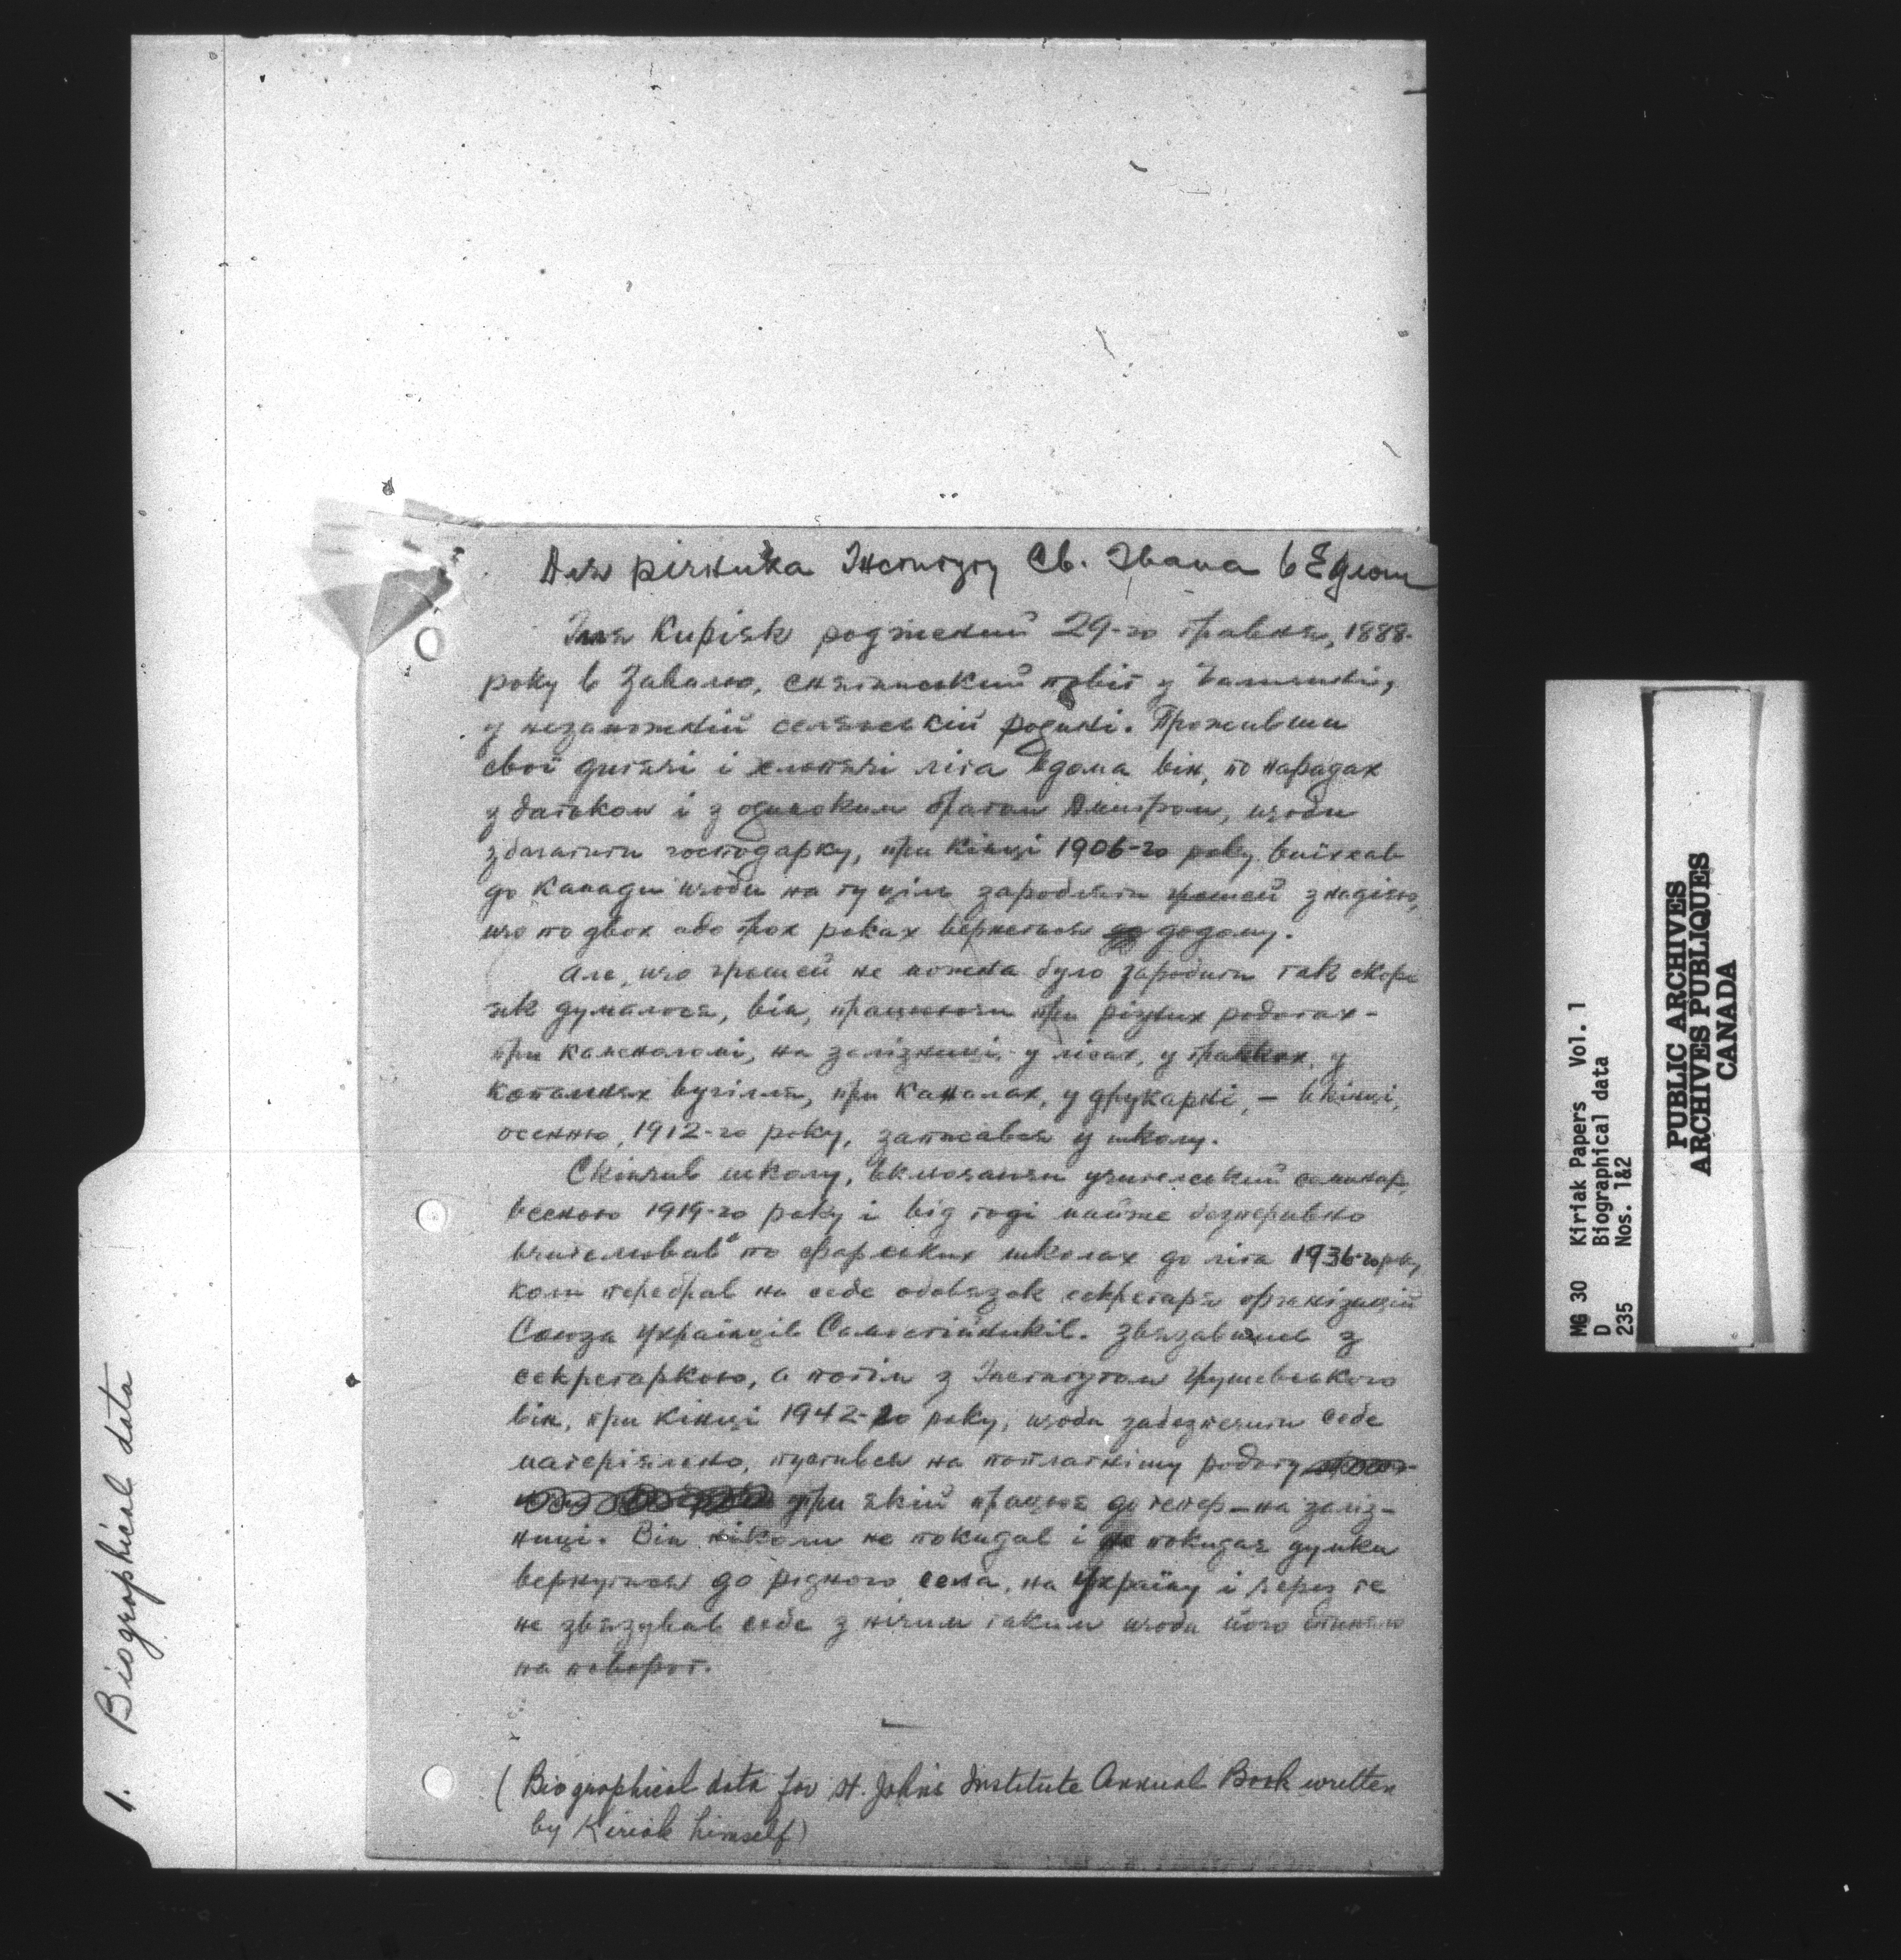 Для річника Інституту Св. Івана в Едмон
Ілля Киріяк роджений 29-го травня, 1888-
року в Завалю, снятинський повіт у Галичині,
у незаможній селянській родині. Проживши
свої дитячі і хлопячі літа вдома він, по нарадах
з батьком і з одиноким братом Дмитром, щоби
збагатити господарку, при кінці 1906-го року виїхав
до Канади щоби на ту ціль заробляти грошей з надією,
що по двох або трох роках вернеться додому.
Але, що грошей не можна було заробити так скоро
як думалося, він, працюючи при різних роботах -
при каменоломі, на залізниці, у лісах, у
копальнях вугілля, при каналах, у друкарні, - вкінці,
осенню, 1912-го року, записався у школу.
Скінчив школу, включаючи учительський семинар,
весною 1919-го року і від тоді майже безперивно
вчителював по фармських школах до літа 1936-го року,
коли перебрав на себе обовязок секретаря організацій
Союза Українців Самостійників. Звязавшись з
секретаркою, а потім з Інститутом Грушевського
він, при кінці 1942-го року, щоби забезпечити себе
матеріяльно, пустився на поплатнішу роботу
при якій працює до тепер - на заліз-
ниці. Він ніколи не покидав і не покидає думки
вернутися до рідного села, на Україну і через те
не звязував себе з нічим таким щоби його спиняло
на поворот.
(Biographical data for St. John's Institute Annual Book written
by Kiriak himself)
1. Biographical data
MG 30 Kiriak Papers Vol. 1
D Biographical data
235 Nos. 1&2
PUBLIC ARCHIVES
ARCHIVES PUBLIQUES
CANADA